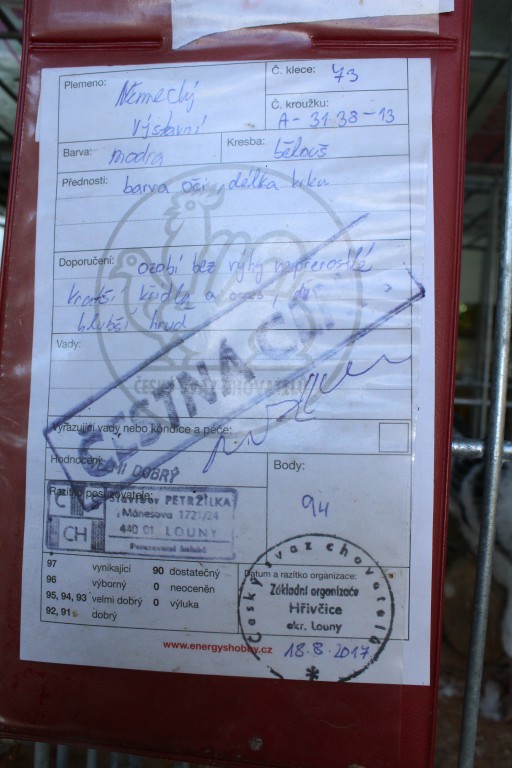 Plemeno: Německý
Výstavní
Č. klece: 73
Č. kroužku:
A-3138-13
Barva: modrá
Kresba: bělouš
Přednosti: barva očí, délka krku
Doporučení: ozobí bez rýhy nepřerostlé
kratší křídla a
hlubší hruď
Vady:
ČESTNÁ CENA
ČESKÝ SVAZ CHOVATELŮ
Vyřazující vady nebo kondice a péče:
Hodnocení: VELMI DOBRÝ
Body:
94
Razítko posuzovatele:
PETRŽILKA
Mánesova 1721/24
440 01 LOUNY
Posuzovatel holubů
C
CH
97 vynikající
96 výborný
95, 94, 93 velmi dobrý
92, 91 dobrý
90 dostatečný
0 neoceněn
0 výluka
Datum a razítko organizace:
Český svaz chovatelů
Základní organizace
Hřivčice
okr. Louny
18.8.2017
www.energyshobby.cz